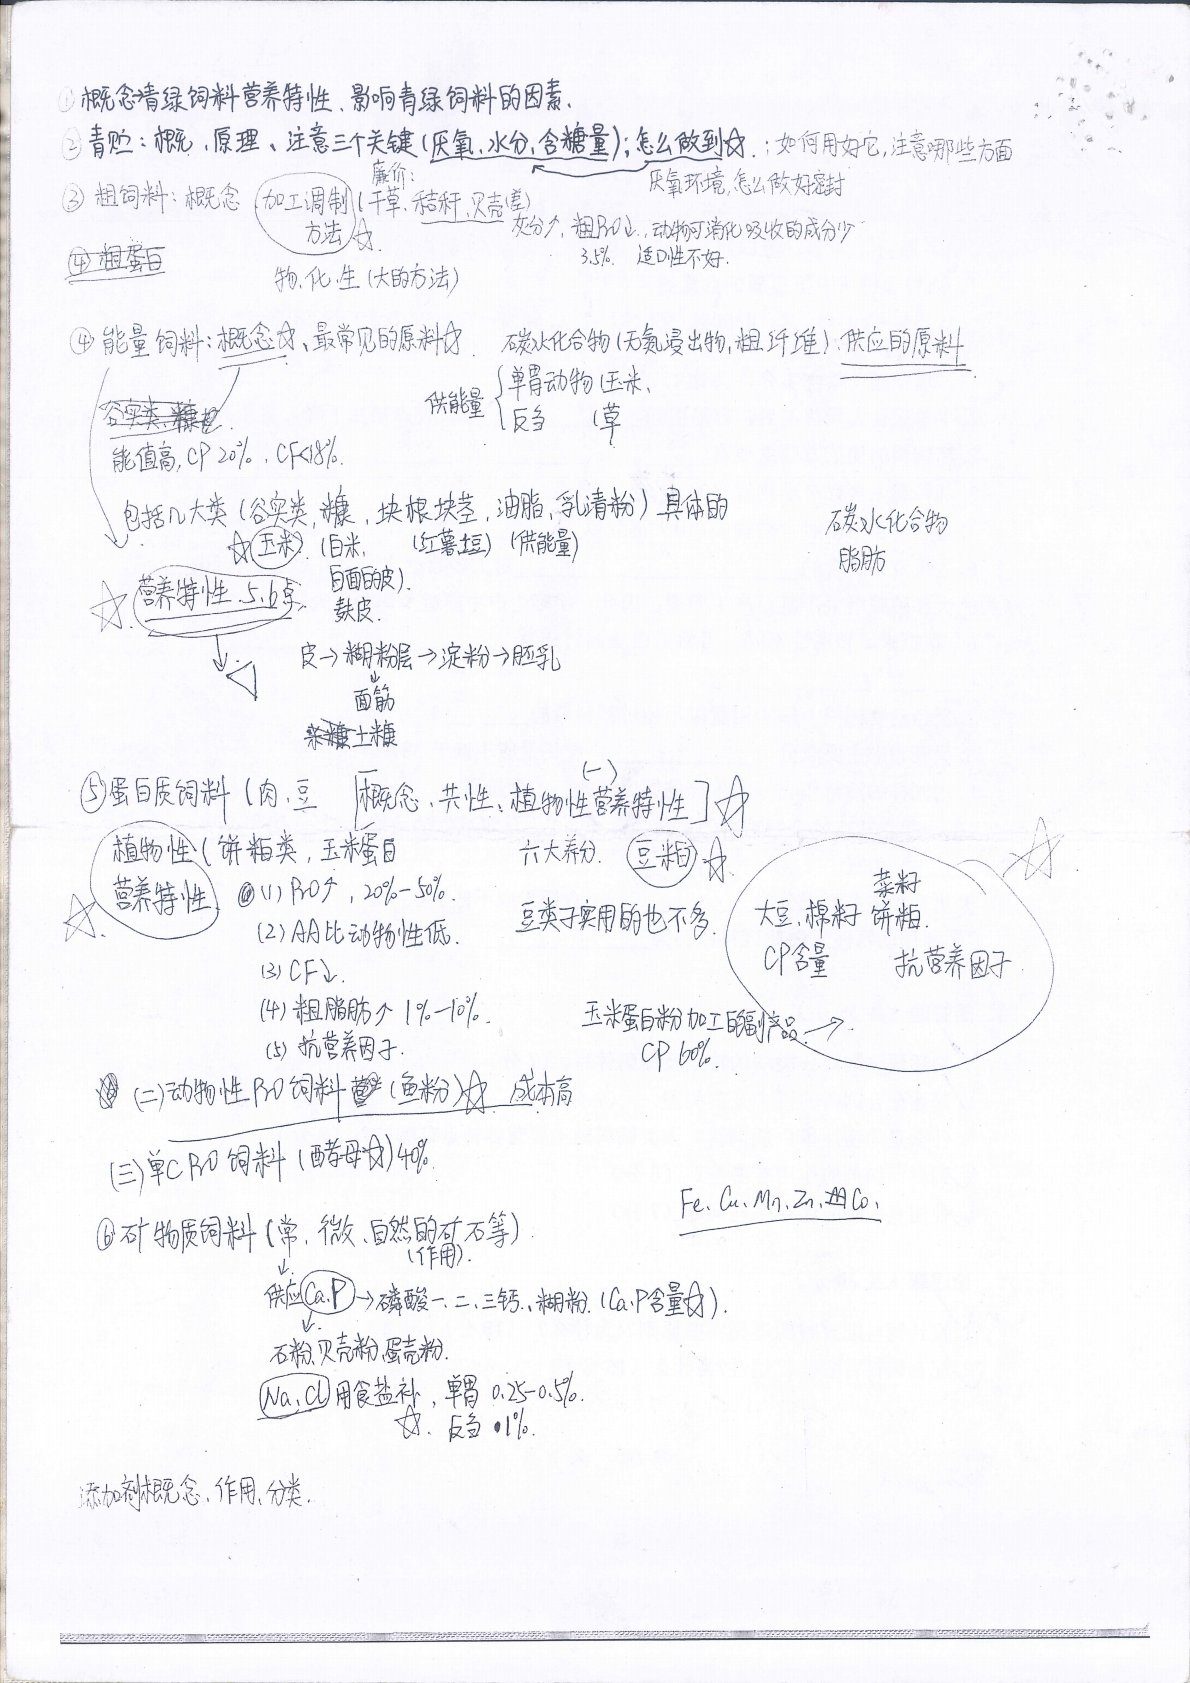 ① 概念、青绿饲料营养特性、影响青绿饲料的因素.
② 青贮：概况、原理、注意三个关键(厌氧、水分、含糖量)；怎么做到☆.：如何用好它，注意哪些方面
厌氧环境，怎么做好密封
廉价：
③ 粗饲料：概念 加工调制方法☆ (干草、秸秆、贝壳(差)
灰分↑，粗PrO↓，动物可消化吸收的成分少
3.5%. 适口性不好.
④ 粗蛋白
物、化、生(大的方法)
④ 能量饲料：概念☆、最常见的原料☆. 碳水化合物(无氮浸出物，粗纤维)、供应的原料
供能量 { 单胃动物(玉米、
反刍 (草
谷实类、糠
能值高，CP 20%. CF<18%.
包括几大类(谷实类，糠，块根块茎，油脂，乳清粉)具体的
☆玉米. (白米， (红薯土豆) (供能量)
白面的皮).
麸皮.
碳水化合物
脂肪
☆ 营养特性、5、6点.
皮→糊粉层→淀粉→胚乳
↓
面筋
米糠土糠
⑤ 蛋白质饲料(肉、豆 [概念、共性、(一)植物性营养特性]☆
植物性(饼粕类，玉米蛋白 六大养分. 豆粕☆
☆ 营养特性 (1) PrO↑，20%-50%.
(2) AA比动物性低. 豆类子实用的也不多.
(3) CF↓
(4) 粗脂肪↑ 1%-10%.
(5) 抗营养因子.
☆
菜籽
大豆、棉籽 饼粕.
CP含量 抗营养因子
玉米蛋白粉加工的副产品→
CP 60%.
(二)动物性PrO饲料(鱼粉)☆ 成本高
(三)单C PrO饲料(酵母☆)40%
Fe、Cu、Mn、Zn、Co、
⑥ 矿物质饲料(常、微、自然的矿石等)
(作用).
↓
供应Ca.P→磷酸一、二、三钙、糊粉.(Ca.P含量☆).
↓
石粉、贝壳粉、蛋壳粉.
Na、Cl 用食盐补，单胃 0.25-0.5%.
☆. 反刍 1%.
添加剂概念、作用、分类.